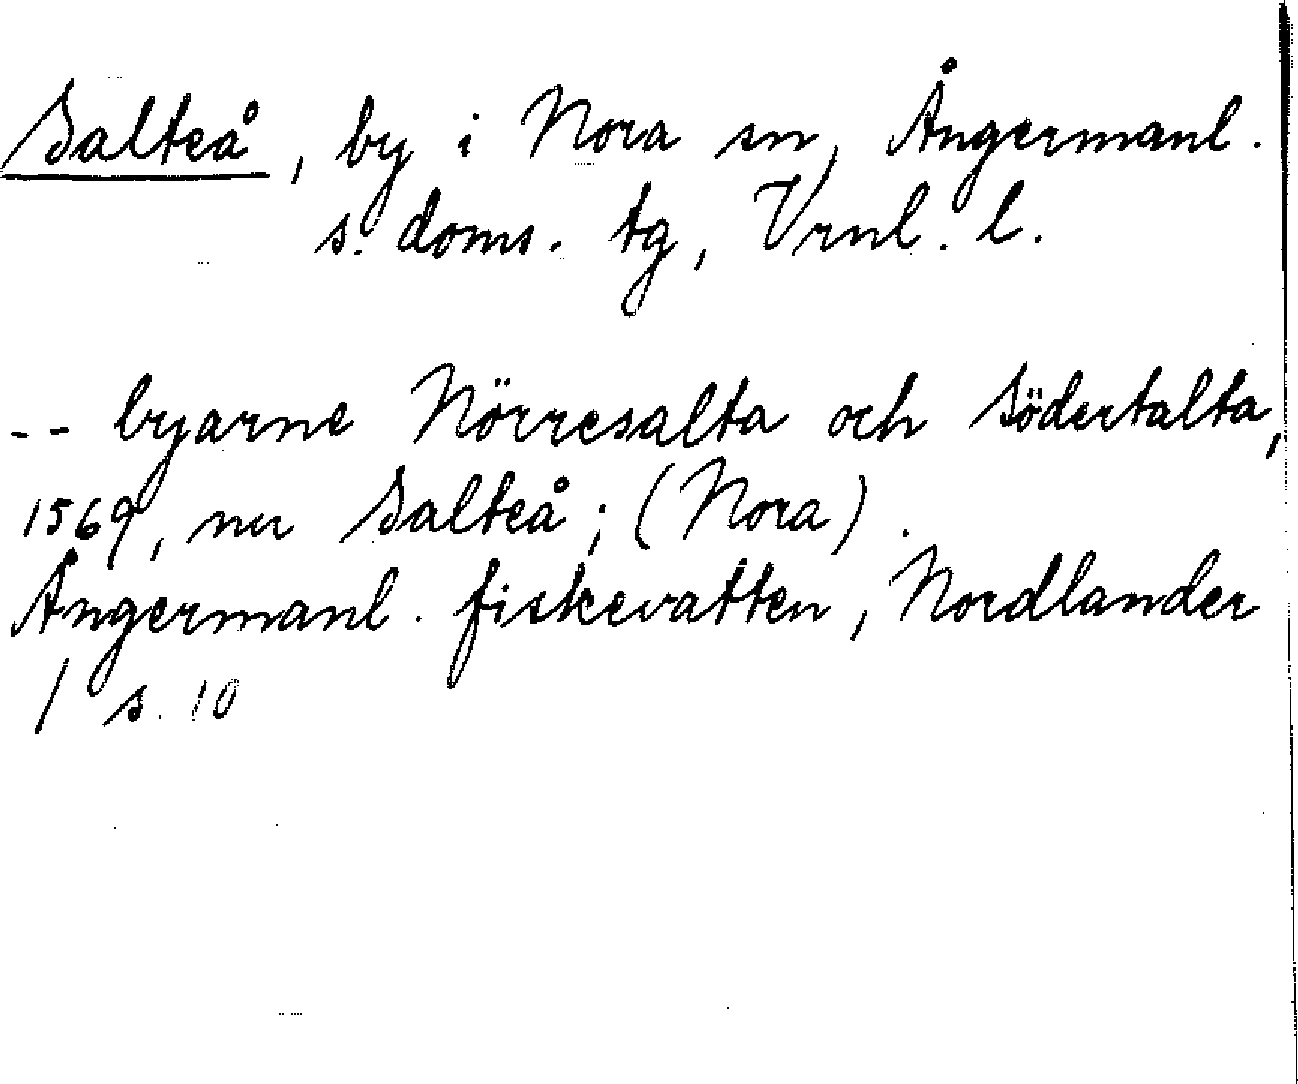 Salteå, by i Nora sn, Ångermanl.
s. doms. tg, Vrnl. l.
-- byarne Nörresalta och Södertalta,
1569, nu Salteå; (Nora).
Ångermanl. fiskevatten, Nordlander
/ s. 10